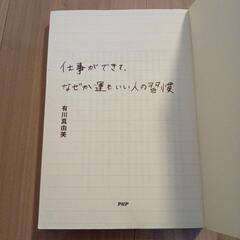 仕事ができて、
なぜか運もいい人の習慣
有川真由美
PHP